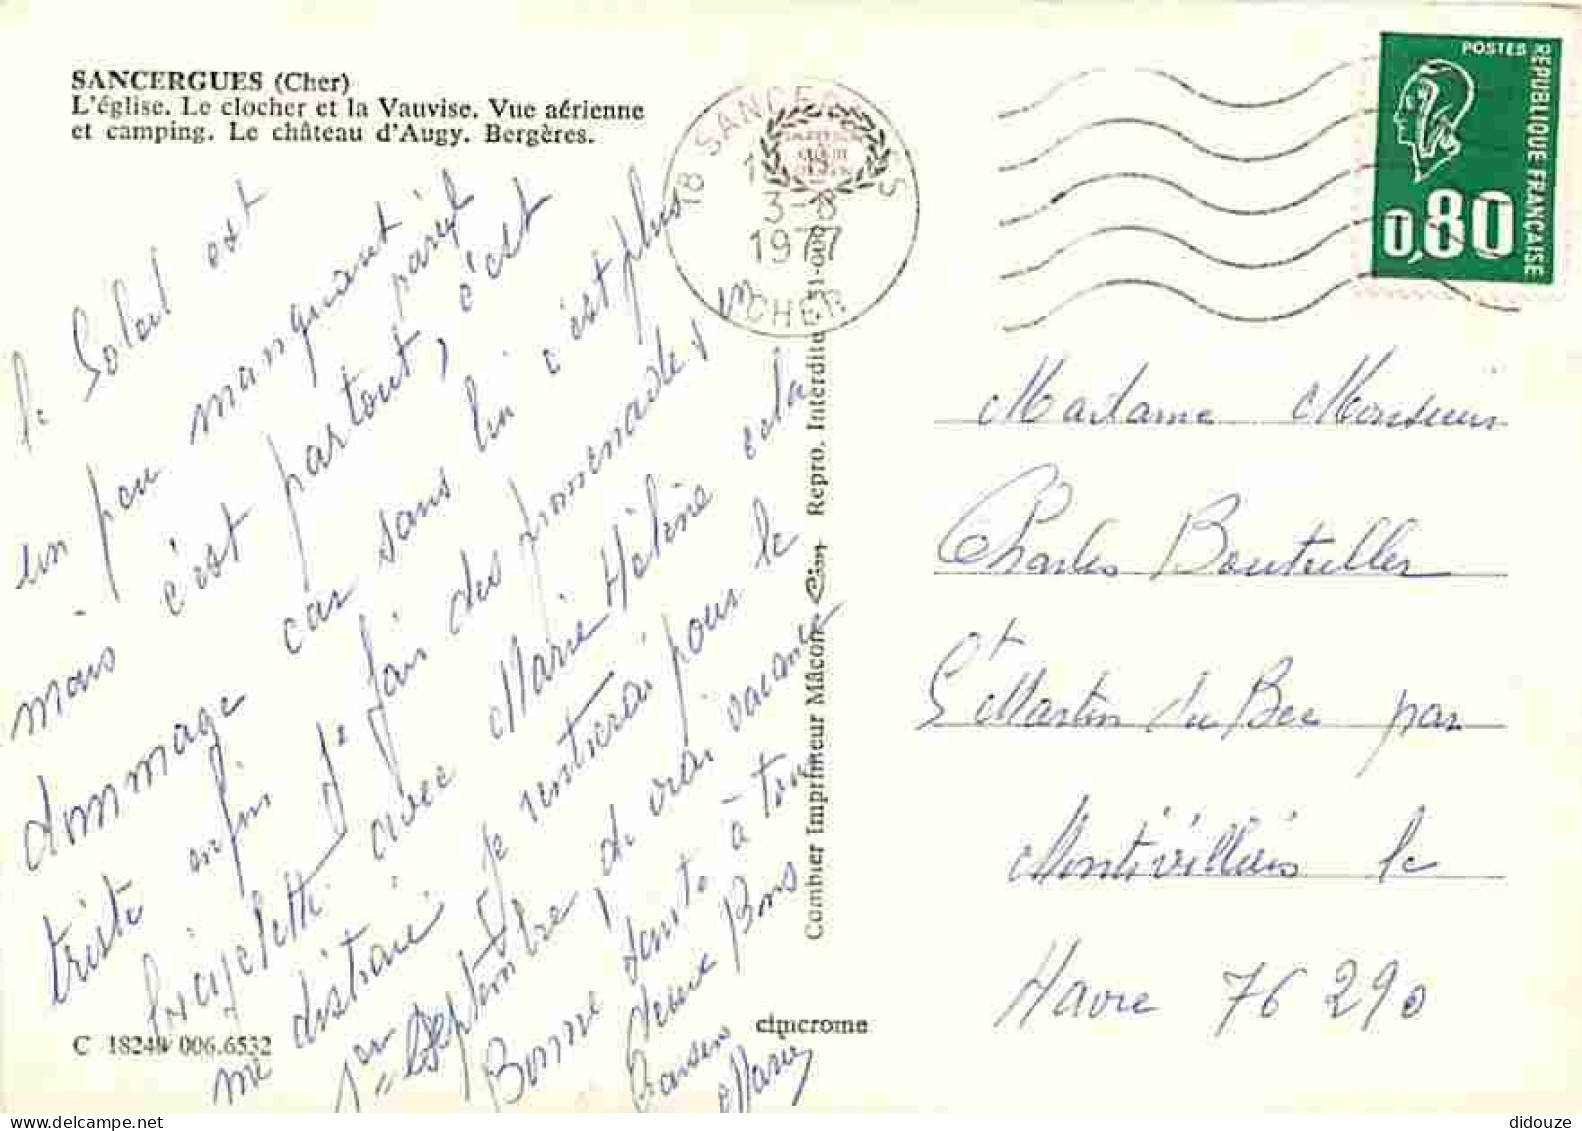 SANCERGUES (Cher)
L'église. Le clocher et la Vauvise. Vue aérienne
et camping. Le château d'Augy. Bergères.
18 SANCERGUES
3-8
1977
CHER
POSTES
REPUBLIQUE FRANÇAISE
0,80
le Soleil est
un peu manquant
mais c'est partout pareil
dommage car sans lui c'est plus
triste enfin je fais des promenades
avec Marie Hélène cela
me distrait je rentrerai pour le
1er Septembre de vrai vacances
Bonne Santé à tous
deux Bons
Baisers
Marie
Combier Imprimeur Mâcon Cim Repro. Interdite
Madame Monsieur
Charles Bouteiller
St Martin du Bec par
Montivilliers le
Havre 76 290
C 18240 006.6532
cimcrome
didouze